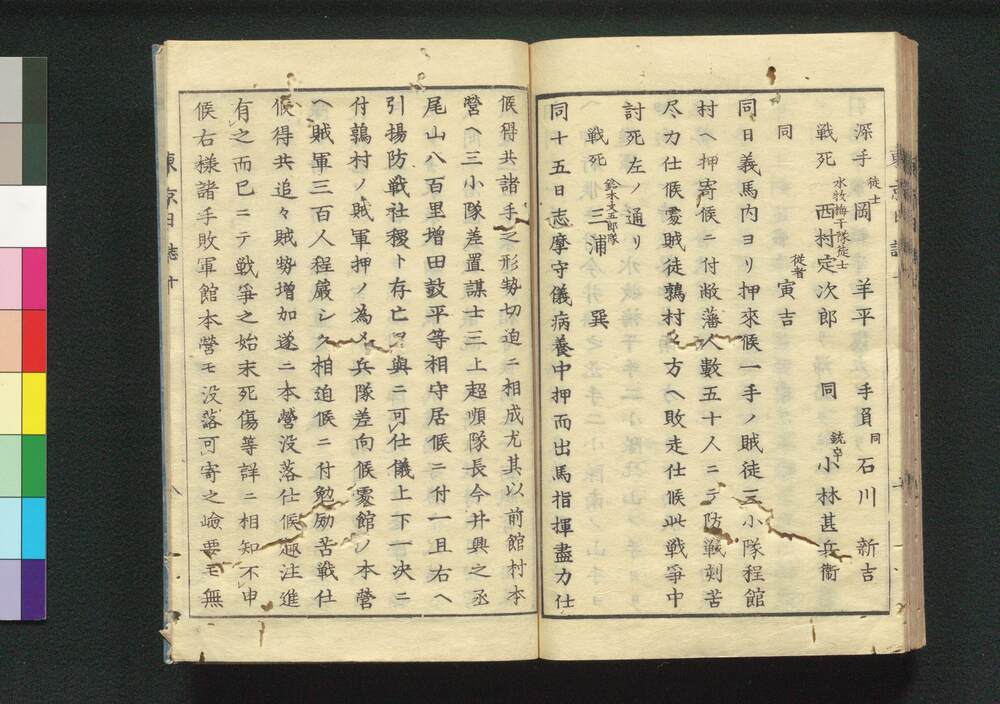 深手 徒士 岡 羊平 手負 同 石川 新吉
戦死 水牧梅干隊徒士 西村定次郎 同 銃卒 小林甚兵衞
同 従者 寅吉
同日義馬内ヨリ押來候一手ノ賊徒三小隊程館
村ヘ押寄候ニ付敝藩人數五十人ニテ防戦刻苦
尽力仕候處賊徒鶉村之方ヘ敗走仕候此戦爭中
討死左ノ通リ
戦死 鈴木文五郎隊 三浦 巽
同十五日志摩守儀病養中押而出馬指揮盡力仕
候得共諸手之形勢切迫ニ相成尤其以前館村本
營ヘ三小隊差置謀士三上超順隊長今井興之丞
尾山八百里増田鼓平等相守居候ニ付一且右ヘ
引揚防戦社稷ト存亡ヲ與ニ可仕儀上下一決ニ
付鶉村ノ賊軍押ノ為メ兵隊差向候處館ノ本營
ヘ賊軍三百人程嚴シク相迫候ニ付勉励苦戦仕
候得共追々賊勢増加遂ニ本營没落仕候趣注進
有之而已ニテ戦爭之始末死傷等詳ニ相知不申
候右様諸手敗軍館本營モ没落可寄之嶮要モ無
東京日誌十
八